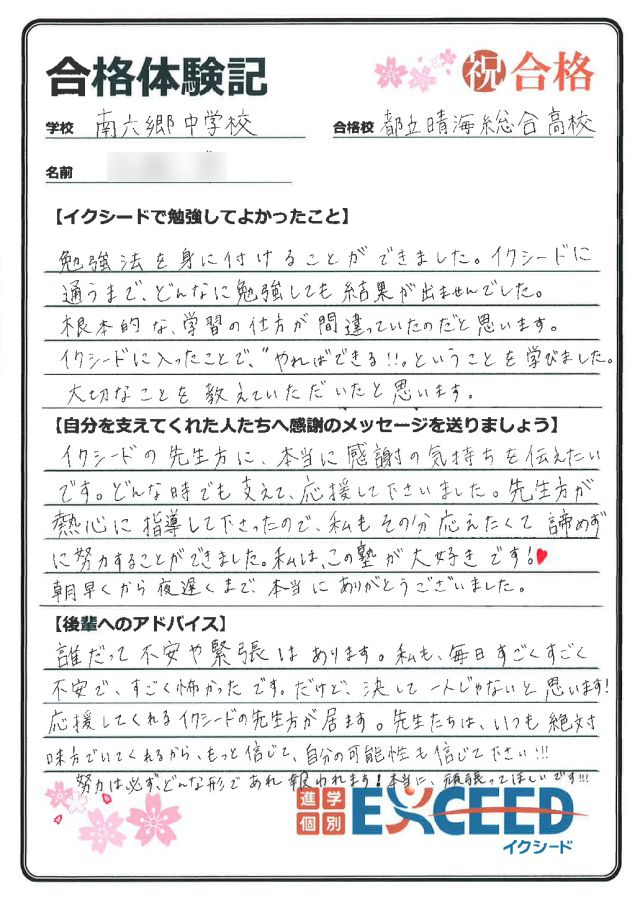 合格体験記
祝 合格
学校 南六郷中学校
合格校 都立晴海総合高校
名前
【イクシードで勉強してよかったこと】
勉強法を身に付けることができました。イクシードに
通うまで、どんなに勉強しても結果が出ませんでした。
根本的な、学習の仕方が間違っていたのだと思います。
イクシードに入ったことで、"やればできる!!"ということを学びました。
大切なことを教えていただいたと思います。
【自分を支えてくれた人たちへ感謝のメッセージを送りましょう】
イクシードの先生方に、本当に感謝の気持ちを伝えたい
です。どんな時でも支えて、応援して下さいました。先生方が
熱心に指導して下さったので、私もその分応えたくて諦めず
に努力することができました。私は、この塾が大好きです!♥
朝早くから夜遅くまで、本当にありがとうございました。
【後輩へのアドバイス】
誰だって不安や緊張はあります。私も、毎日すごくすごく
不安で、すごく怖かったです。だけど、決して一人じゃないと思います!
応援してくれるイクシードの先生方が居ます。先生たちは、いつも絶対
味方でいてくれるから、もっと信じて、自分の可能性も信じて下さい!!!
努力は必ず、どんな形であれ報われます!本当に、頑張ってほしいです!!!
進学
個別
EXCEED
イクシード